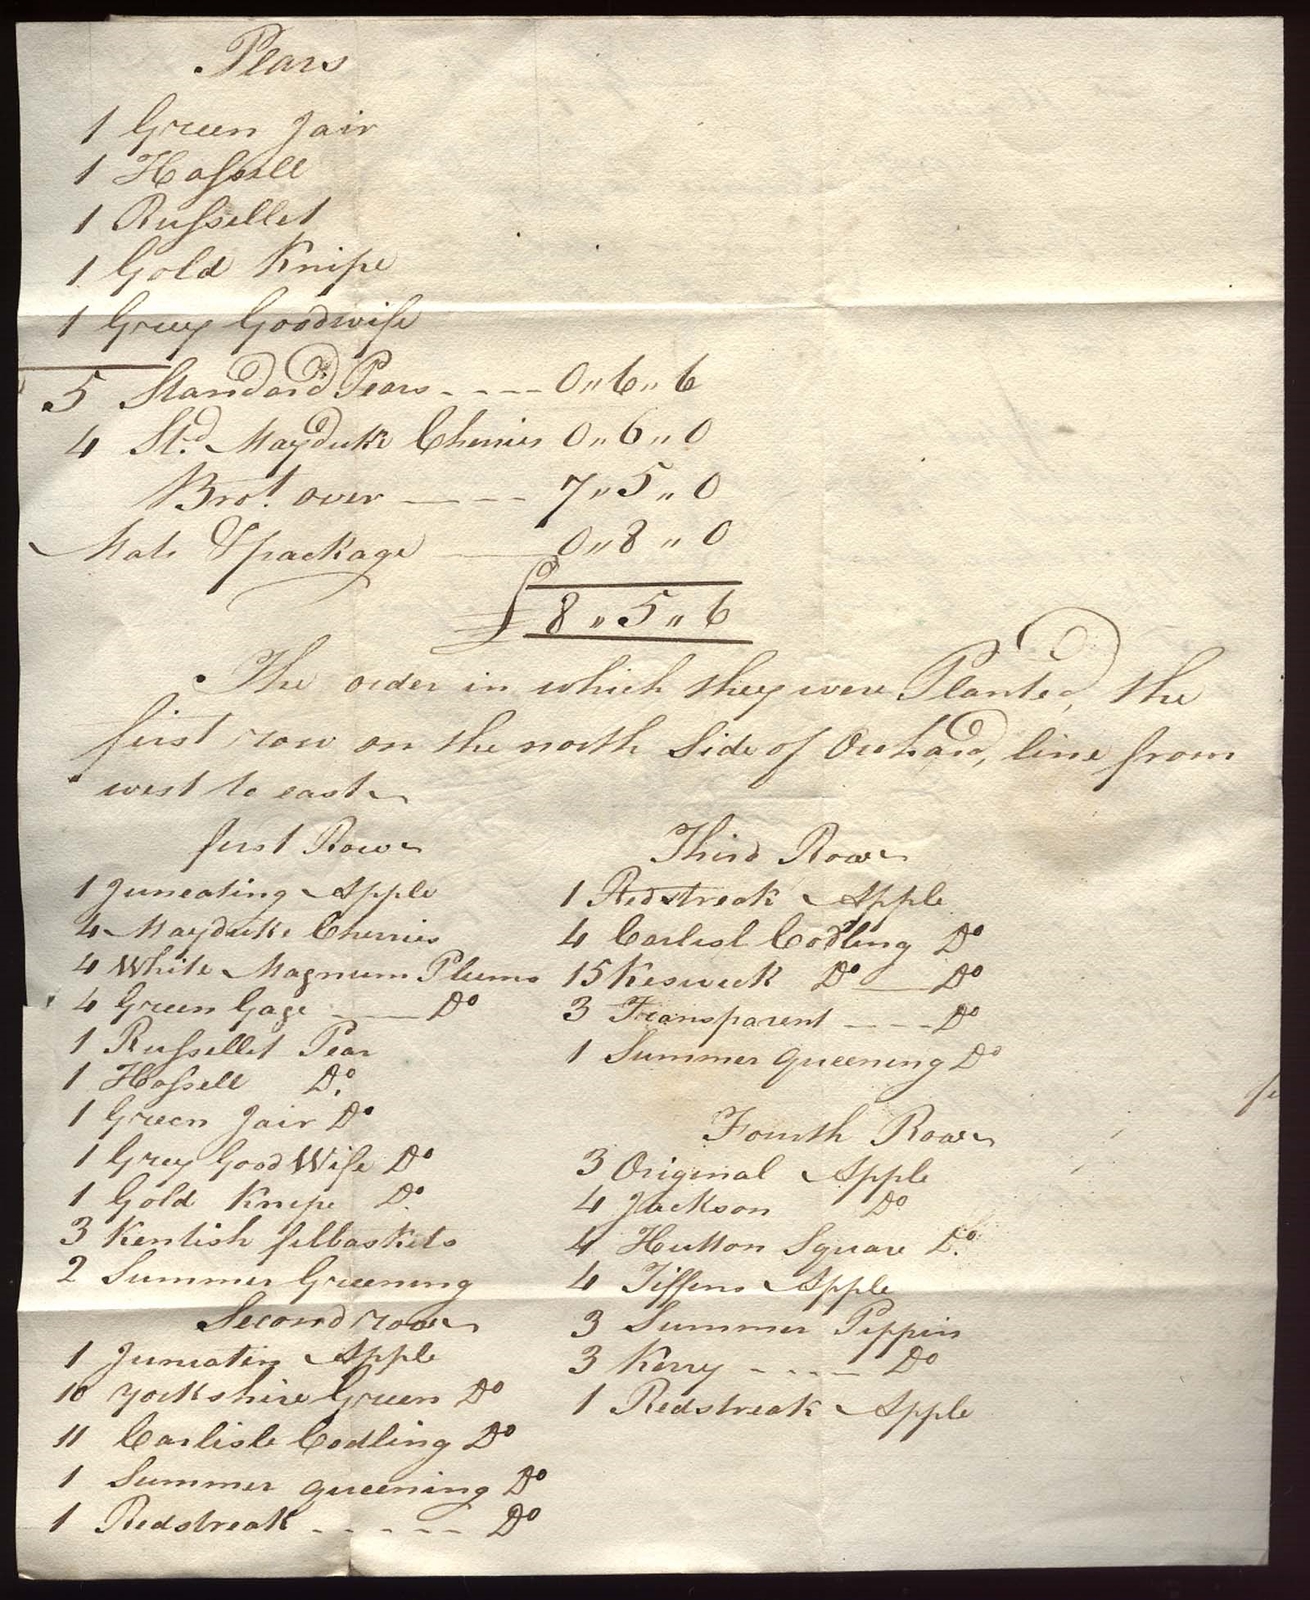 Pears
1 Green Jair
1 Hassell
1 Russellet
1 Gold Knipe
1 Grey Goodwife
5 Standard Pears - - - - 0 " 6 " 6
4 Std. Mayduke Cherries 0 " 6 " 0
Brot. over - - - 7 " 5 " 0
Mats & package 0 " 8 " 0
£ 8 " 5 " 6
The order in which they were Planted, the
first row on the north Side of Orchard, line from
west to east
first Row
1 Juneating Apple
4 Mayduke Cherries
4 White Magnum Plums
4 Green Gage Do
1 Russellet Pear
1 Hassell Do.
1 Green Jair Do
1 Grey Good Wife Do
1 Gold Knipe Do.
3 Kentish fillbaskets
2 Summer Greening
Second row
1 Juneatin Apple
10 Yorkshire Green Do
11 Carlisle Codling Do
1 Summer queening Do
1 Redstreak - - - - - Do
Third Row
1 Redstreak Apple
4 Carlisl Codling Do
15 Keswick Do Do
3 Transparent - - - Do
1 Summer queening Do
Fourth Row
3 Original Apple
4 Jackson Do
4 Hutton Square Do.
4 Tiffins Apple
3 Summer Pippin
3 Kerry - - - - Do
1 Redstreak Apple